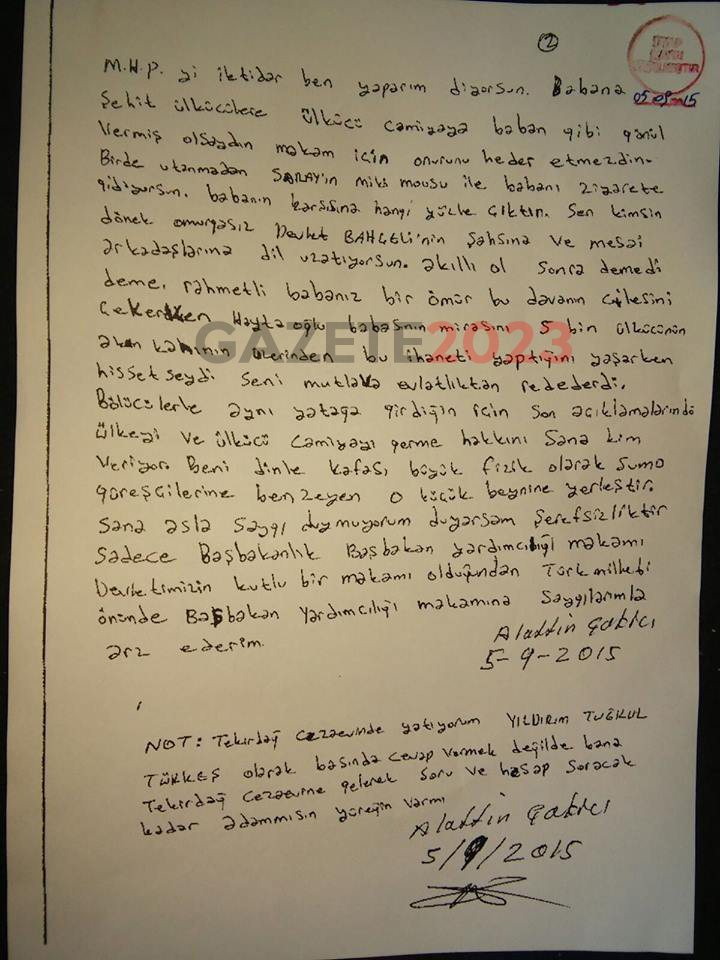 2
M.H.P. yi iktidar ben yaparım diyorsun. Babana
05 09 15
Şehit ülkücülere ülkücü camiyaya baban gibi gönül
vermiş olsaydın makam için onurunu heder etmezdin.
Birde utanmadan SARAY'ın miki mousu ile babanı ziyarete
gidiyorsun. babanın karşısına hangi yüzle çıktın. Sen kimsin
dönek omurgasız Devlet BAHÇELİ'nin şahsına ve mesai
arkadaşlarına dil uzatıyorsun. akıllı ol sonra demedi
deme. rahmetli babanız bir ömür bu davanın çilesini
çekerken Haytaoğlu babasının mirasını 5 bin ülkücünün
akan kanının üzerinden bu ihaneti yaptığını yaşarken
GAZETE2023
hissetseydi seni mutlaka evlatlıktan redederdi.
Bölücülerle aynı yatağa girdiğin için son açıklamalarında
ülkeyi ve ülkücü camiyayı germe hakkını sana kim
veriyor. Beni dinle kafası, büyük fizik olarak sumo
güreşçilerine benzeyen o küçük beynine yerleştir.
Sana asla saygı duymuyorum duyarsam şerefsizliktir
sadece Başbakanlık Başbakan yardımcılığı makamı
Devletimizin kutlu bir makamı olduğundan Türk milleti
önünde Başbakan Yardımcılığı makamına saygılarımla
arz ederim.
Alattin Çakıcı
5-9-2015
NOT: Tekirdağ cezaevinde yatıyorum YILDIRIM TUĞRUL
TÜRKEŞ olarak basında cevap vermek değilde bana
Tekirdağ cezaevine gelerek soru ve hesap soracak
kadar adammısın yüreğin varmı
Alattin Çakıcı
5/9/2015